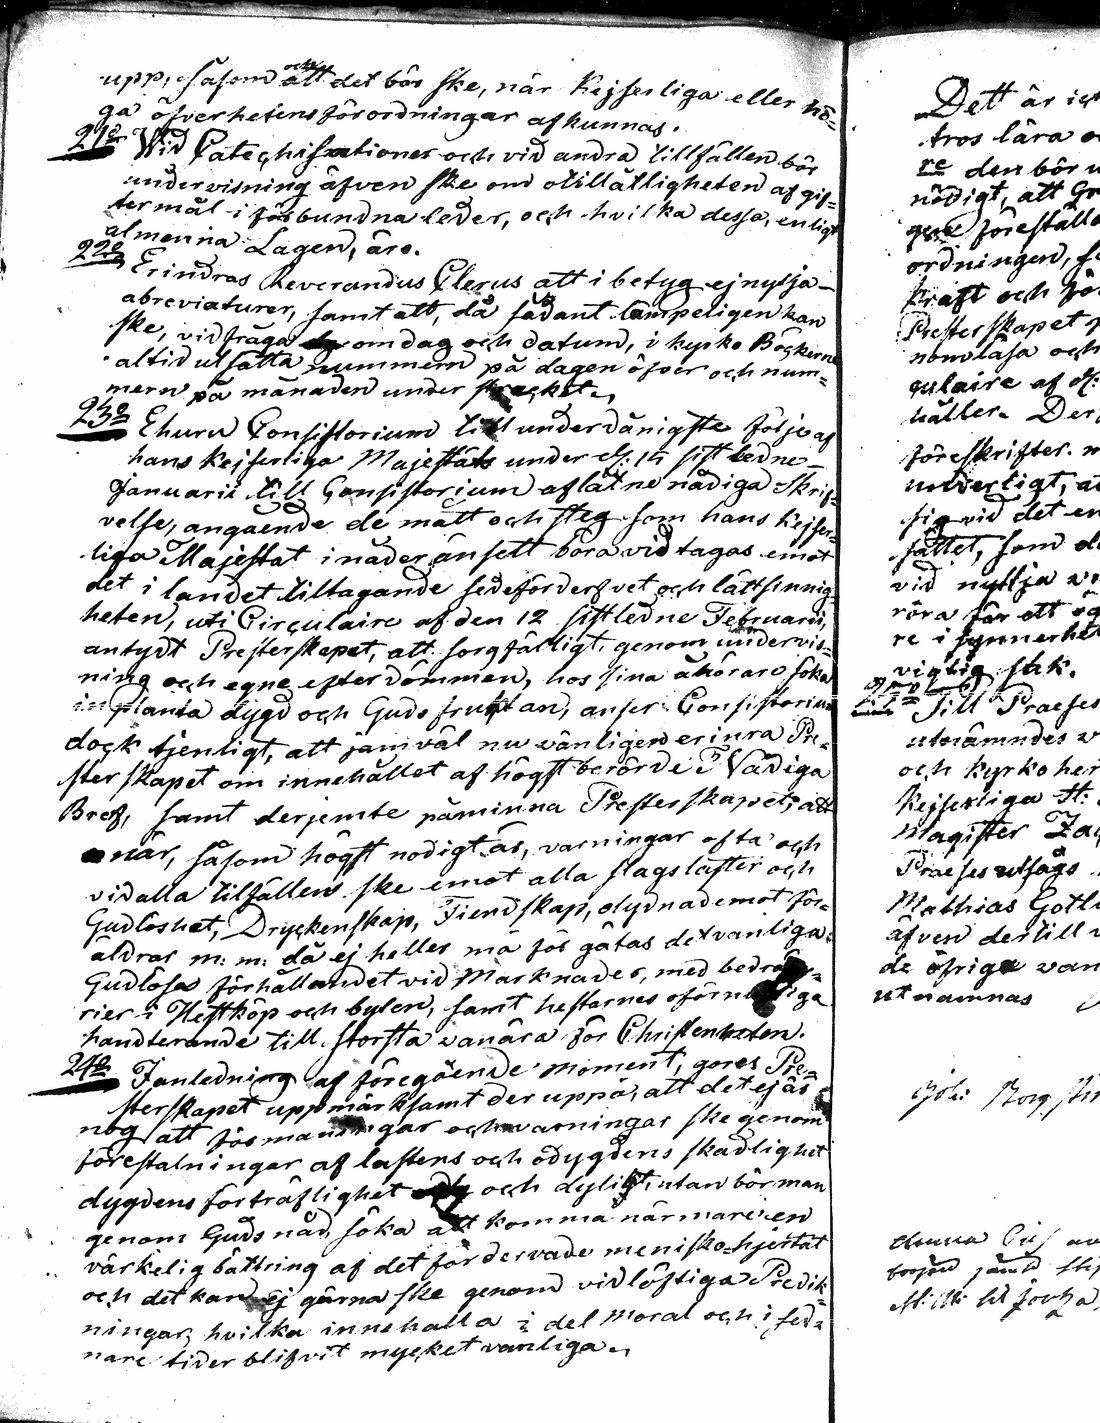 upp, såsom ock att det bör ske, när Kejserliga eller hö-
ga öfverhetens förordningar afkunnas.
21o Vid Catechisationer och vid andra tillfällen bör
undervisning äfven ske om otillåtligheten af gif-
termål i förbundna leder, och hvilka dessa, enligt
almenna Lagen, äro.
22o Erindras Reverandus Clerus att i betyg ej nytja
abreviaturer, samt att, då sådant lämpeligen kan
ske, vid fråga om dag och datum, i kyrko Böckerne
altid utsätta nummern på dagen öfver och num-
mern på månaden under strecket.
23o Ehuru Consistorium till underdånigste följe af
hans Kejserliga Majestäts under d. 15 sistledne
Januarii till Consistorium aflåtne nådiga Skrif-
velse, angående de mått och steg som hans Kejser-
liga Majestät i nåder ansett böra vidtagas emot
det i landet tiltagande sedeförderfvet och lättsinnig-
heten, uti Circulaire af den 12 sistledne Februarii,
antydt Presterskapet, att sorgfälligt, genom undervis-
ning och egne efterdömmen, hos sina åhörare söka
inplanta dygd och Guds fruktan, anser Consistorium
dock tjenligt, att jämväl nu vänligen erinra Pre-
sterskapet om innehållet af högstberörde Nådiga
Bref, samt derjemte påminna Presterskapet, att
när, såsom högst nödigt är, varningar ofta och
vid alla tilfällen ske emot alla slags laster och
Gudlöshet, Dryckenskap, Fiendskap, olydnad emot för-
äldrar m: m: då ej heller må förgätas det vanliga
Gudlösa förhållandet vid Marknader, med bedräge-
rier i Hestköp och byten, samt hestarnes oförnuftiga
handterande till största vanära för Christenheten.
24o I anledning af föregående moment, göres Pre-
sterskapet uppmärksamt deruppå, att det ej är
nog att förmaningar och varningar ske genom
förestalningar af lastens och odygdens skadlighet
dygdens förträflighet och dylikt, utan bör man
genom Guds nåd söka att komma närmare en
värkelig bättring af det förderfvade menisko-hjertat
och det kan ej gärna ske genom vidlöftiga Predik-
ningar, hvilka innehålla en del Moral och i sed-
nare tider blifvit mycket vanliga.
Dett är
tros lära
re den bör
nödigt, att
föreställa
ordningen,
kraft och
Presterskapet
och
culaire af d:
håller. Der
föreskrifter.
sig vid det
sättet, som
vid nyttja
röra för ett
re i synnerhet
vigtig sak.
Till Praeses
utnämndes
och kyrkoher
Kejserliga
Magister
Praeses utsågs
Mathias Gotl
äfven dertill
de öfriga van
utnämnas
Joh: Borg